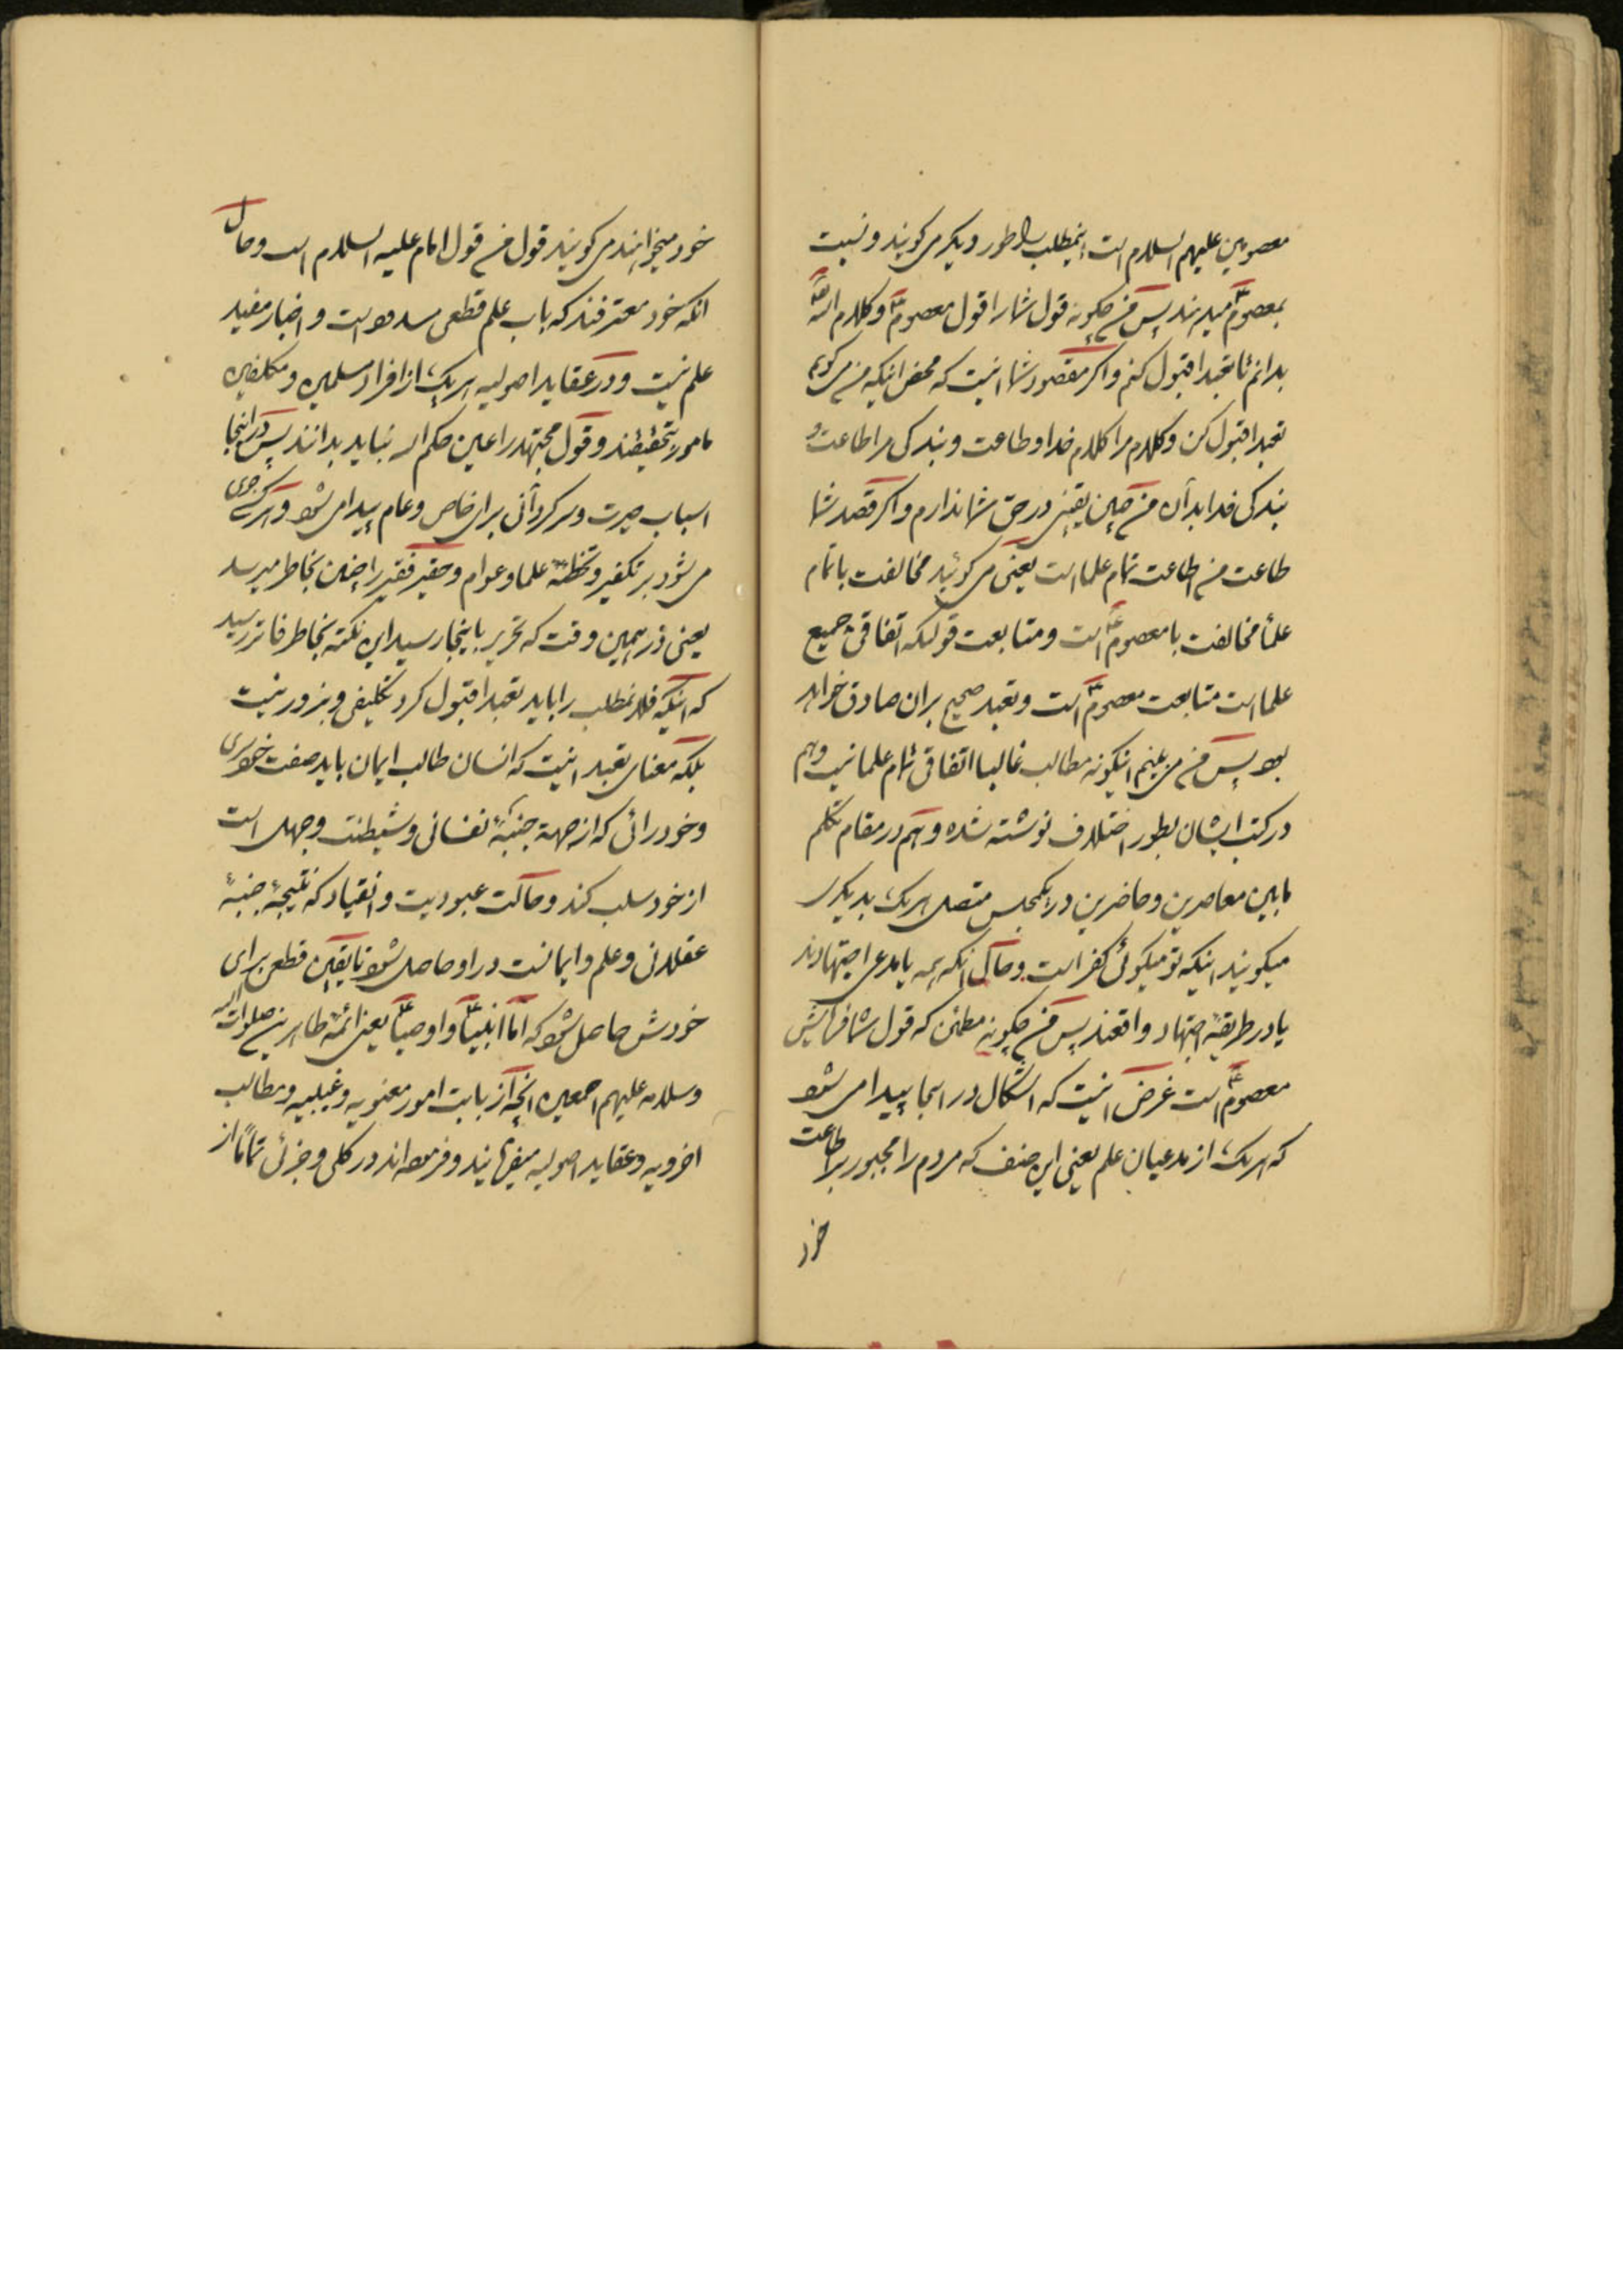 معصومین علیهم السلام است اینمطلب را بطور دیگر می گویند و نسبت
بمعصومؑ میدهند پس من چگونه قول شما را قول معصومؑ و کلام اللّه
بدانم تا تعبدا قبول کنم و اگر مقصود شما اینست که محض اینکه من می گویم
تعبدا قبول کن و کلام مرا کلام خدا و طاعت و بندگی مرا طاعت و
بندگی خدا بدان من چنین یقینی در حق شما ندارم و اگر قصد شما
طاعت من اطاعت تمام علما است یعنی می گوئید مخالفت با تمام
علما مخالفت با معصومؑ است و متابعت قولیکه اتفاقی جمیع
علما است متابعت معصومؑ است و تعبد صحیح بران صادق خواهد
بود پس من می بینم اینگونه مطالب غالبا اتفاقی تمام علما نیست و هم
در کتب ایشان بطور اختلاف نوشته شده و هم در مقام تکلم
مابین معاصرین و حاضرین در یکمجلس متصل هر یک بدیگری
میگویند اینکه تو میگوئی کفر است و حال انکه همه یا مدعی اجتهادند
یا در طریقه اجتهاد واقفند پس من چگونه مطمئن که قول شما فرمایش
معصومؑ است غرض اینست که اشکال در اینجا پیدا می شود
که هر یک از مدعیان علم یعنی این صنف که مردم را مجبور بر اطاعت
خود
خود میخوانند می گویند قول من قول امام علیه السلام است و حال
انکه خود معترفند که باب علم قطعی مسدود است و اخبار مفید
علم نیست و در عقاید اصولیه هر یک از افراد مسلمین و مکلفین
مامور بتحقیقند و قول مجتهد را عین حکم اله نباید بدانند پس در اینجا
اسباب حیرت و سرگردانی برای خاص و عام پیدا می شود و هر کس جری
می شود بر تکفیر و تخطئه علما و عوام و حقیر فقیر را چنین بخاطر میرسد
یعنی در همین وقت که تحریر باینجا رسید این نکته بخاطر فاتر رسید
که اینکه فلانمطلب را باید تعبدا قبول کرد تکلیفی و بزور نیست
بلکه معنای تعبد اینست که انسان طالب ایمان باید صفت خودسری
و خودرائی که از جهة جنبهٔ نفسانی و شیطنت و جهل است
از خود سلب کند و حالت عبودیت و انقیاد که نتیجهٔ جنبهٔ
عقلانی و علم و ایمانست در او حاصل شود تا یقین قطعی برای
خودش حاصل شود که اما انبیاؑ و اوصیاؑ یعنی ائمه طاهرین صلوات اللّه
و سلامه علیهم اجمعین انچه از بابت امور معنویه و غیبیه و مطالب
اخرویه و عقاید اصولیه میفرمایند و فرموده اند در کلی و جزئی تماماً از